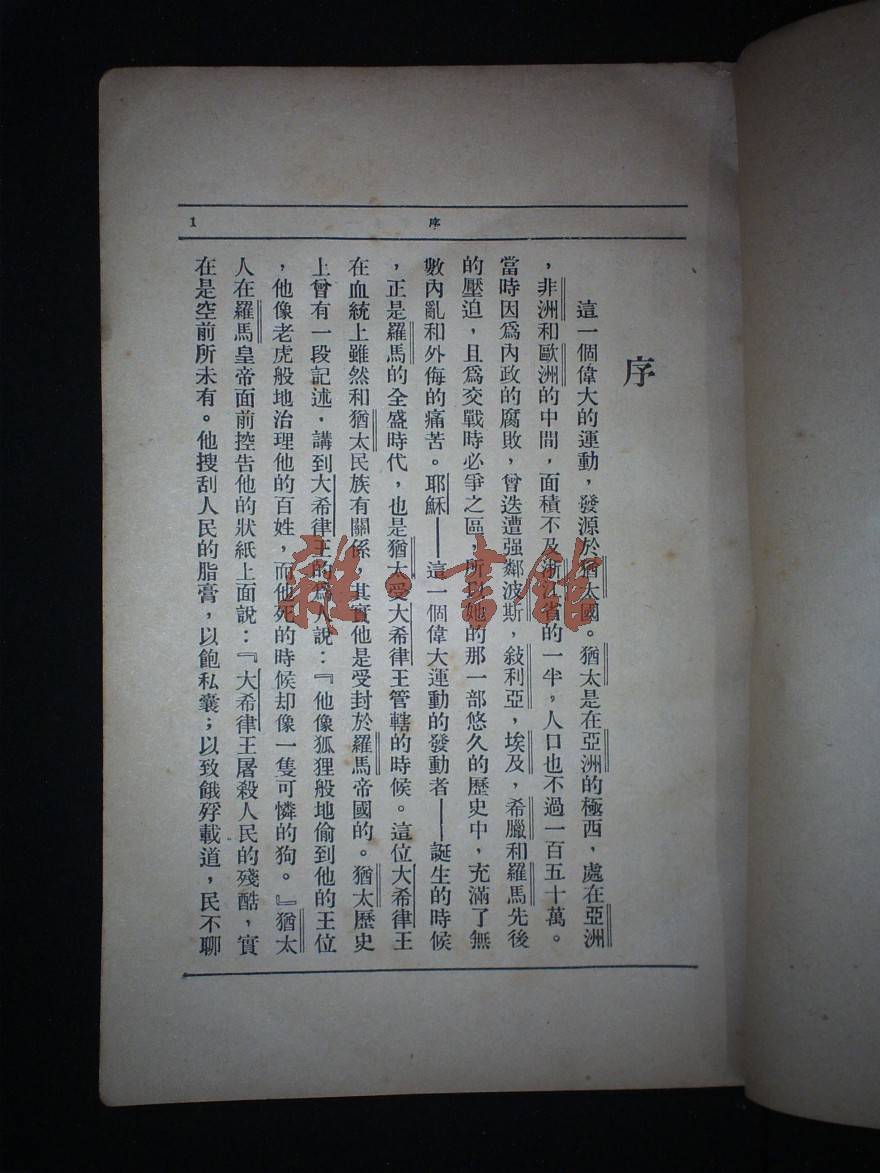 1
序
序
這一個偉大的運動，發源於猶太國。猶太是在亞洲的極西，處在亞洲
，非洲和歐洲的中間，面積不及浙江省的一半，人口也不過一百五十萬。
當時因爲內政的腐敗，曾迭遭强鄰波斯，敍利亞，埃及，希臘和羅馬先後
的壓迫，且爲交戰時必爭之區，所以她的那一部悠久的歷史中，充滿了無
數內亂和外侮的痛苦。耶穌——這一個偉大運動的發動者——誕生的時候
，正是羅馬的全盛時代，也是猶太受大希律王管轄的時候。這位大希律王
在血統上雖然和猶太民族有關係，其實他是受封於羅馬帝國的。猶太歷史
上曾有一段記述，講到大希律王的爲人說：『他像狐狸般地偷到他的王位
，他像老虎般地治理他的百姓，而他死的時候却像一隻可憐的狗。』猶太
人在羅馬皇帝面前控告他的狀紙上面說：『大希律王屠殺人民的殘酷，實
在是空前所未有。他搜刮人民的脂膏，以飽私囊；以致餓殍載道，民不聊
雜·書館